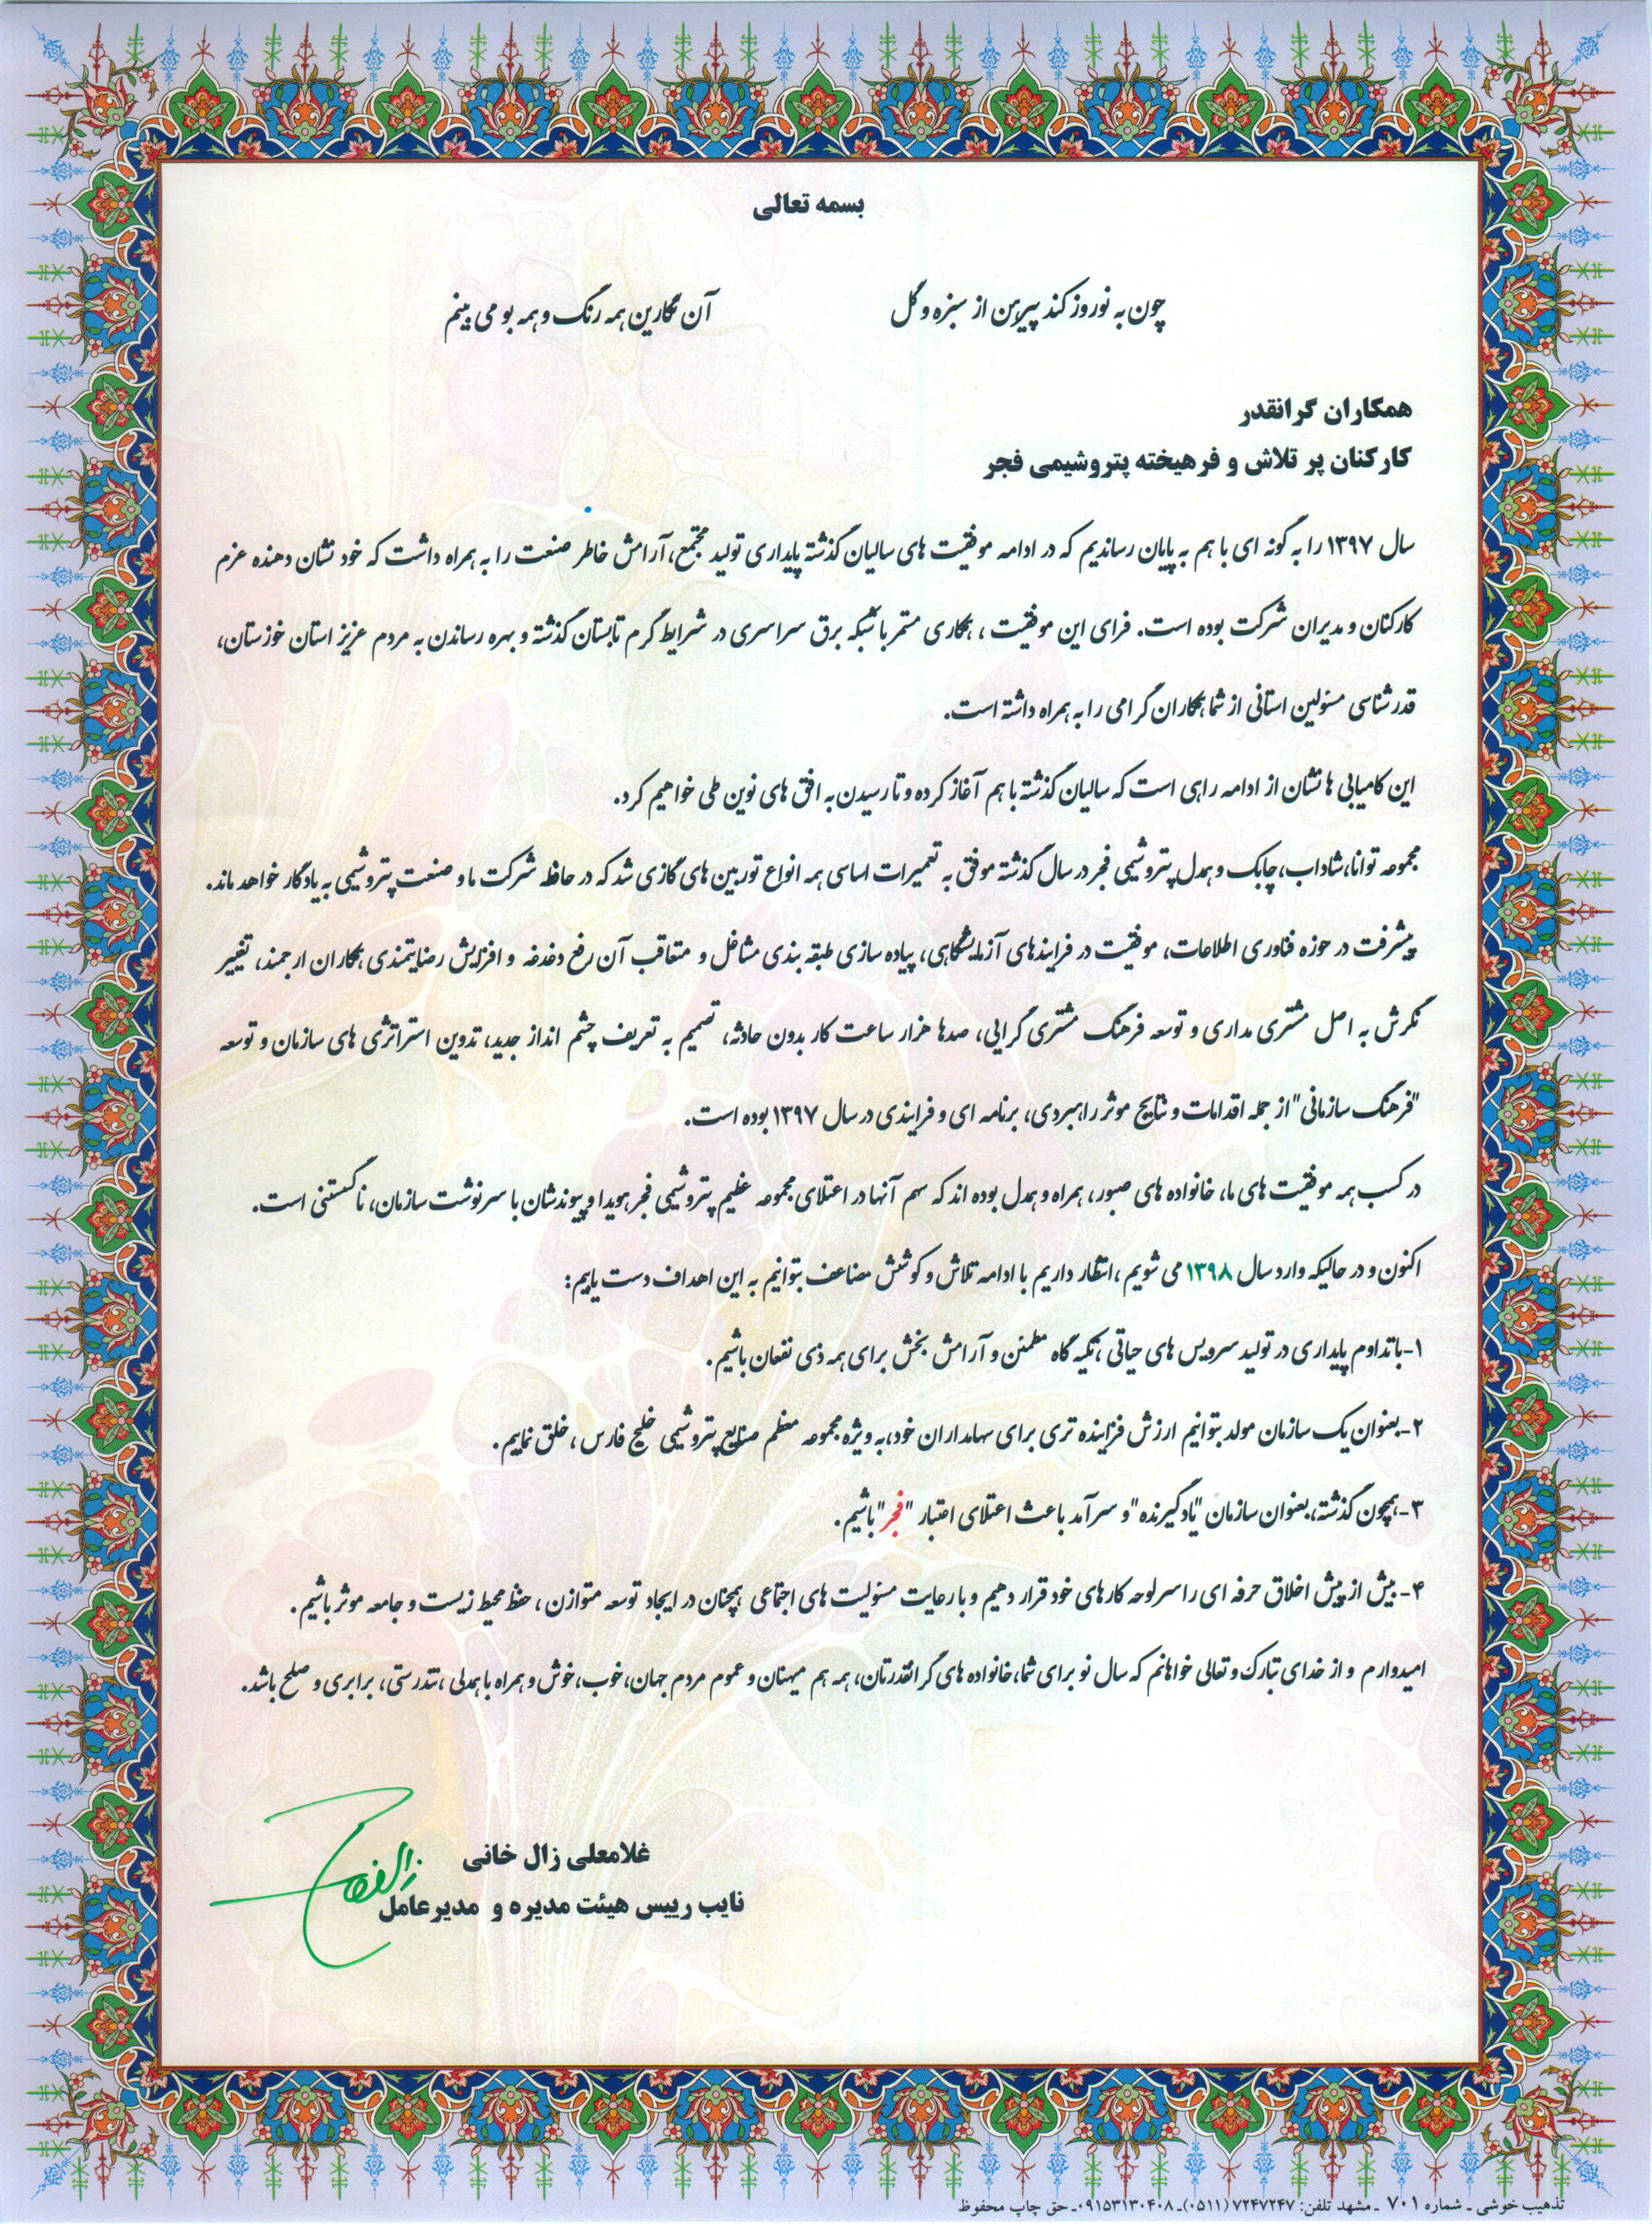 بسمه تعالی
چون به نوروز کند پیرهن از سبزه و گل
آن نگارین همه رنگ و همه بو می بینم
همکاران گرانقدر
کارکنان پر تلاش و فرهیخته پتروشیمی فجر
سال ۱۳۹۷ را به گونه ای با هم به پایان رساندیم که در ادامه موفقیت های سالیان گذشته پایداری تولید مجتمع، آرامش خاطر صنعت را به همراه داشت که خود نشان دهنده عزم
کارکنان و مدیران شرکت بوده است. فرای این موفقیت ، همکاری مستمر با شبکه برق سراسری در شرایط گرم تابستان گذشته و بهره رساندن به مردم عزیز استان خوزستان،
قدرشناسی مسئولین استانی از شما همکاران گرامی را به همراه داشته است.
این کامیابی ها نشان از ادامه راهی است که سالیان گذشته با هم آغاز کرده و تا رسیدن به افق های نوین طی خواهیم کرد.
مجموعه توانا، شاداب، چابک و همدل پتروشیمی فجر در سال گذشته موفق به تعمیرات اساسی همه انواع توربین های گازی شد که در حافظه شرکت ما و صنعت پتروشیمی به یادگار خواهد ماند.
پیشرفت در حوزه فناوری اطلاعات، موفقیت در فرایندهای آزمایشگاهی، پیاده سازی طبقه بندی مشاغل و متعاقب آن رفع دغدغه و افزایش رضایتمندی همکاران ارجمند، تغییر
نگرش به اصل مشتری مداری و توسعه فرهنگ مشتری گرایی، صدها هزار ساعت کار بدون حادثه، تصمیم به تعریف چشم انداز جدید، تدوین استراتژی های سازمان و توسعه
"فرهنگ سازمانی" از جمله اقدامات و نتایج موثر راهبردی، برنامه ای و فرایندی در سال ۱۳۹۷ بوده است.
در کسب همه موفقیت های ما، خانواده های صبور، همراه و همدل بوده اند که سهم آنها در اعتلای مجموعه عظیم پتروشیمی فجر هویدا و پیوندشان با سرنوشت سازمان، ناگسستنی است.
اکنون و در حالیکه وارد سال ۱۳۹۸ می شویم ، انتظار داریم با ادامه تلاش و کوشش مضاعف بتوانیم به این اهداف دست یابیم:
۱- با تداوم پایداری در تولید سرویس های حیاتی ، تکیه گاه مطمئن و آرامش بخش برای همه ذی نفعان باشیم.
۲- بعنوان یک سازمان مولد بتوانیم ارزش فزاینده تری برای سهامداران خود، به ویژه مجموعه معظم صنایع پتروشیمی خلیج فارس ، خلق نماییم.
۳- همچون گذشته، بعنوان سازمان "یادگیرنده" و سرآمد باعث اعتلای اعتبار "فجر" باشیم.
۴- بیش از پیش اخلاق حرفه ای را سرلوحه کارهای خود قرار دهیم و با رعایت مسئولیت های اجتماعی همچنان در ایجاد توسعه متوازن ، حفظ محیط زیست و جامعه موثر باشیم.
امیدوارم و از خدای تبارک و تعالی خواهانم که سال نو برای شما، خانواده های گرانقدرتان، همه هم میهنان و عموم مردم جهان، خوب، خوش و همراه با همدلی ، تندرستی ، برابری و صلح باشد.
غلامعلی زال خانی
نایب رییس هیئت مدیره و مدیرعامل
تذهیب خوشی ـ شماره ۷۰۱ ـ مشهد تلفن: ۷۲۴۷۲۴۷ (۰۵۱۱)ـ ۰۹۱۵۳۱۳۰۴۰۸ـ حق چاپ محفوظ